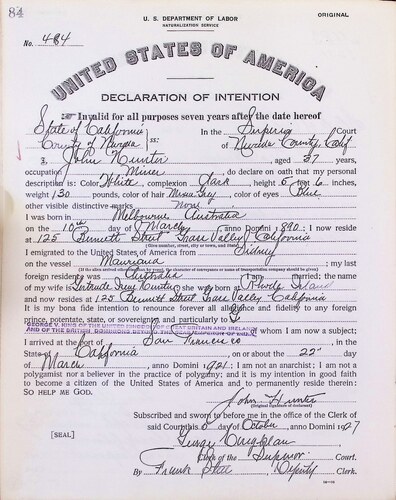 84
U. S. DEPARTMENT OF LABOR
NATURALIZATION SERVICE
ORIGINAL
No. 484
UNITED STATES OF AMERICA
DECLARATION OF INTENTION
Invalid for all purposes seven years after the date hereof
State of California
County of Nevada ss: In the Superior Court
of Nevada County, Calif
I, John Hunter, aged 37 years,
occupation Miner, do declare on oath that my personal
description is: Color White, complexion Dark, height 5 feet 6 inches,
weight 130 pounds, color of hair Mixed Grey, color of eyes Blue
other visible distinctive marks None
I was born in Melbourne Australia
on the 10th day of March, anno Domini 1890; I now reside
at 125 Bennett Street Grass Valley, California
(Give number, street, city or town, and State.)
I emigrated to the United States of America from Sidney
on the vessel; my last
foreign residence was Australia
married; the name
of my wife is Gertrude Hunter; she was born at Rhode Island
and now resides at 125 Bennett Street Grass Valley California
It is my bona fide intention to renounce forever all allegiance and fidelity to any foreign
prince, potentate, state, or sovereignty, and particularly to
GEORGE V, KING OF THE UNITED KINGDOM OF GREAT BRITAIN AND IRELAND
AND OF THE BRITISH DOMINIONS BEYOND THE SEAS, EMPEROR OF INDIA, of whom I am now a subject;
I arrived at the port of San Francisco, in the
State of California, on or about the 22nd day
of March, anno Domini 1921; I am not an anarchist; I am not a
polygamist nor a believer in the practice of polygamy; and it is my intention in good faith
to become a citizen of the United States of America and to permanently reside therein:
SO HELP ME GOD.
John Hunter
(Original signature of declarant.)
Subscribed and sworn to before me in the office of the Clerk of
said Court this day of October, anno Domini 1927
[SEAL]
Clerk of the Superior Court.
By Frank Steel Deputy Clerk.